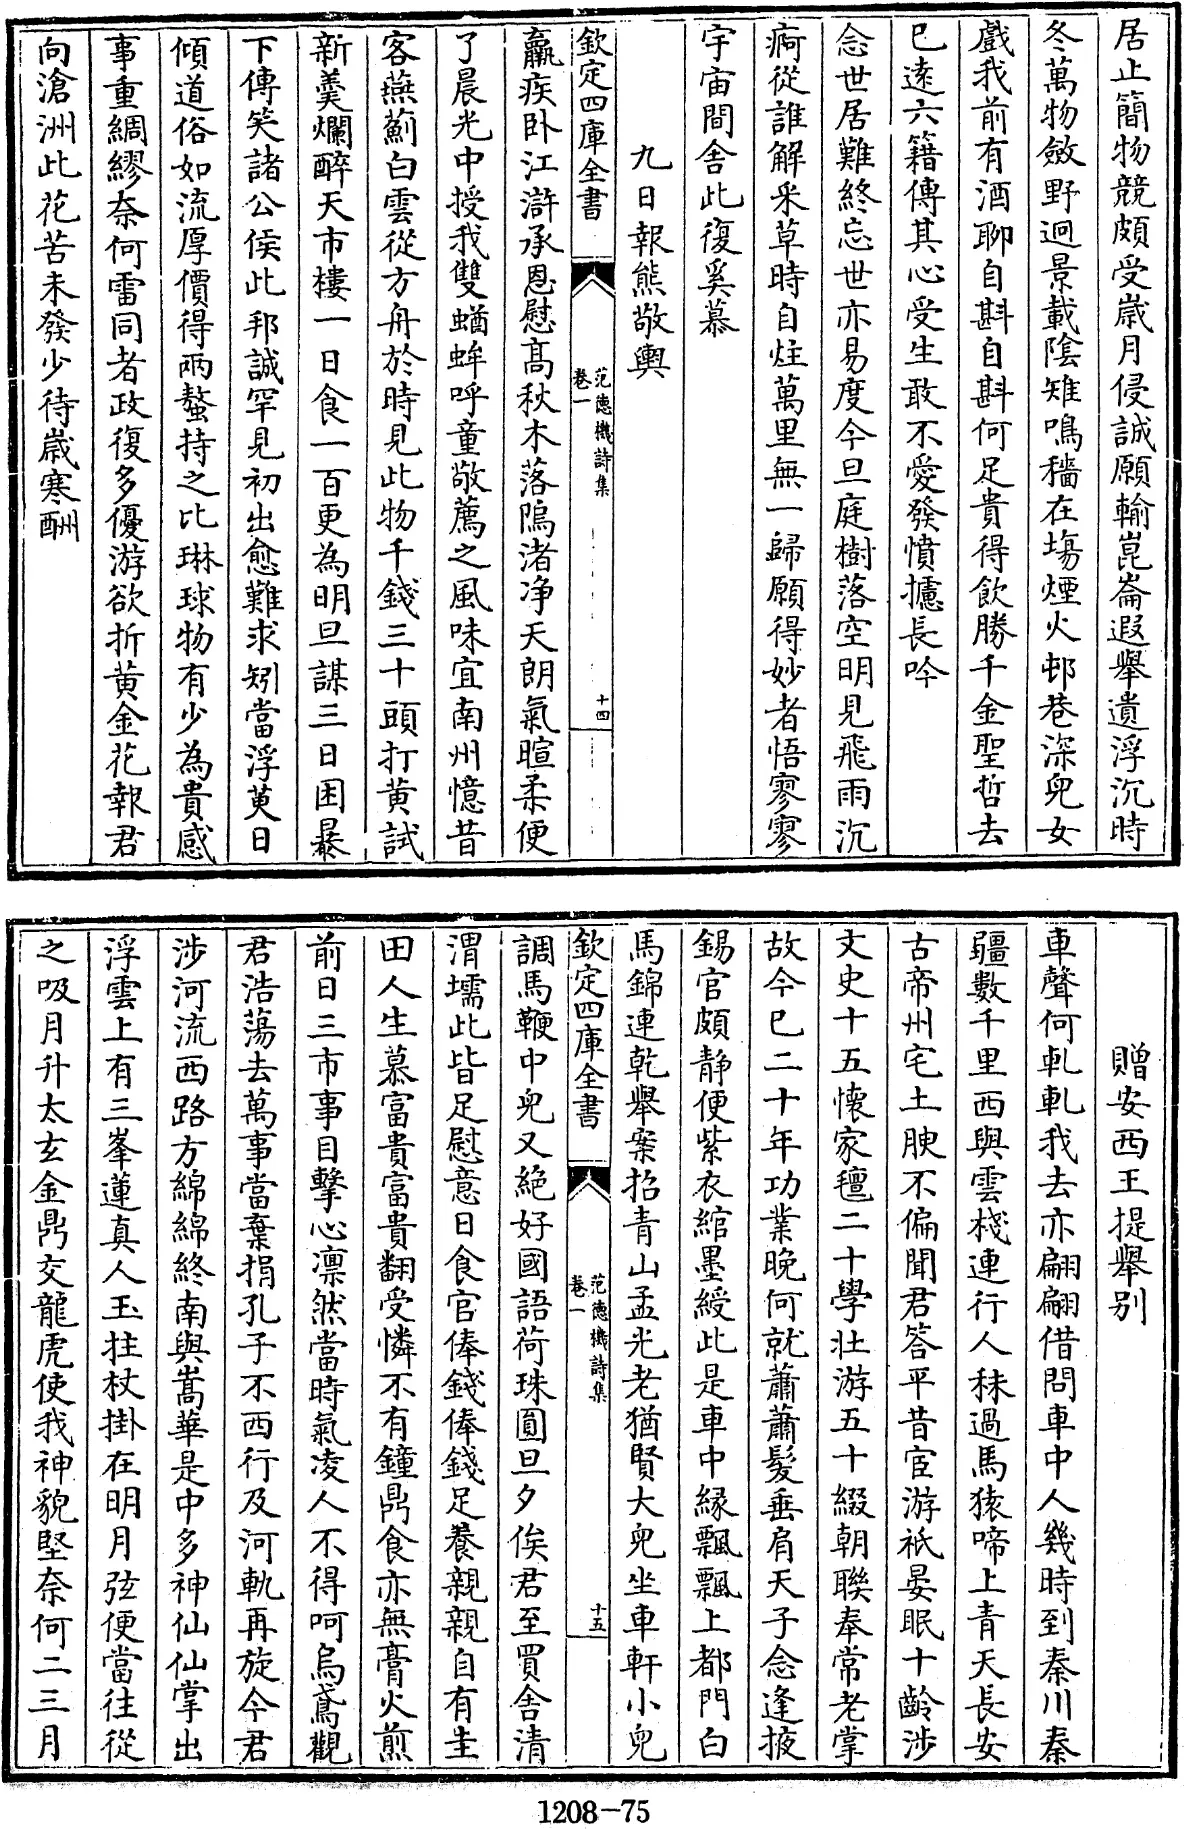 居止簡物競頗受嵗月侵誠願輸崑崙遐舉遺浮沉時
冬萬物斂野迥景載陰雉鳴穡在塲煙火邨巷深兒女
戲我前有酒聊自斟自斟何足貴得飲勝千金聖哲去
已遠六籍傳其心受生敢不愛發憤攄長吟
念世居難終忘世亦易度今旦庭樹落空明見飛雨沉
痾從誰解采草時自炷萬里無一歸願得妙者悟寥寥
宇宙間舍此復奚慕
九日報熊敬輿
欽定四庫全書
范德機詩集
卷一
十四
羸疾卧江滸承恩慰髙秋木落隝渚净天朗氣暄柔便
了晨光中授我雙蝤蛑呼童敬薦之風味宜南州憶昔
客燕薊白雲從方舟於時見此物千錢三十頭打黄試
新羹爛醉天市樓一日食一百更為明旦謀三日困暴
下傳笑諸公侯此邦誠罕見初出愈難求矧當浮萸日
傾道俗如流厚價得兩螯持之比琳球物有少為貴感
事重綢繆奈何雷同者政復多優游欲折黄金花報君
向滄洲此花苦未發少待嵗寒酬
贈安西王提舉别
車聲何軋軋我去亦翩翩借問車中人幾時到秦川秦
疆數千里西與雲棧連行人秣過馬猿啼上青天長安
古帝州宅土腴不偏聞君答平昔宦游祇晏眠十齡涉
文史十五懷家氊二十學壯游五十綴朝聯奉常老掌
故今已二十年功業晚何就蕭蕭髮垂肩天子念逢掖
錫官頗静便紫衣綰墨綬此是車中緣飄飄上都門白
馬錦連乾舉案招青山孟光老猶賢大兒坐車軒小兒
欽定四庫全書
范德機詩集
卷一
十五
調馬鞭中兒又絶好國語荷珠圓旦夕俟君至買舍清
渭壖此皆足慰意日食官俸錢俸錢足養親親自有生
田人生慕富貴富貴翻受憐不有鐘鼎食亦無膏火煎
前日三市事目擊心凛然當時氣凌人不得呵烏鳶觀
君浩蕩去萬事當棄捐孔子不西行及河軌再旋今君
涉河流西路方綿綿終南與嵩華是中多神仙仙掌出
浮雲上有三峯蓮真人玉拄杖掛在明月弦便當往從
之吸月升太玄金鼎交龍虎使我神貌堅奈何二三月
1208-75